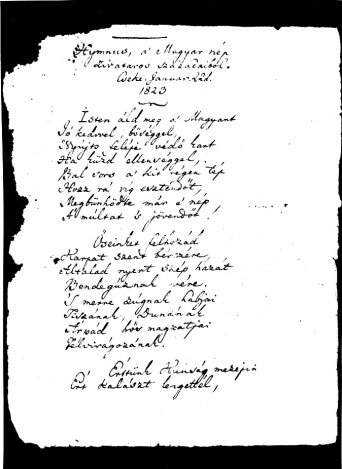 Hymnus, a' Magyar nép
zivataros századaiból.
Cseke. Januar. 22d.
1823
Isten áld meg a' Magyart
Jó kedvvel, bőséggel,
Nyujts feléje védő kart
Ha küzd ellenséggel,
Bal sors a' kit régen tép
Hozz rá víg esztendőt,
Megbünhödte már e' nép
A' múltat 's jövendőt!
Őseinket felhozád
Kárpát szent bérczére,
Általad nyert szép hazát
Bendegúznak vére.
'S merre zúgnak habjai
Tiszának, Dunának
Árpád hős magzatjai
Felvirágozának.
Értünk Kunság mezején
Ért kalászt lengettél,